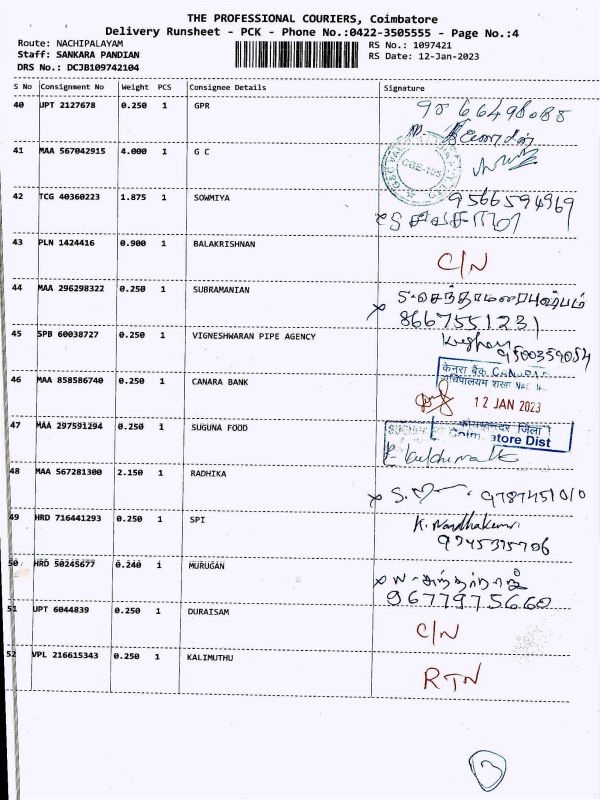 THE PROFESSIONAL COURIERS, Coimbatore
Delivery Runsheet - PCK - Phone No.:0422-3505555 - Page No.:4
Route: NACHIPALAYAM
RS No.: 1097421
Staff: SANKARA PANDIAN
RS Date: 12-Jan-2023
DRS No.: DCJB109742104
S No Consignment No Weight PCS Consignee Details Signature
40 UPT 2127678 0.250 1 GPR
41 MAA 567042915 4.000 1 G C
CBE-105
42 TCG 40360223 1.875 1 SOWMIYA 9566594969
43 PLN 1424416 0.900 1 BALAKRISHNAN C/N
44 MAA 296298322 0.250 1 SUBRAMANIAN
8667551231
45 SPB 60038727 0.250 1 VIGNESHWARAN PIPE AGENCY
9500359084
46 MAA 858586740 0.250 1 CANARA BANK
केनरा बैंक
12 JAN 2023
47 MAA 297591294 0.250 1 SUGUNA FOOD
Coimbatore Dist
48 MAA 567281300 2.150 1 RADHIKA
9787451010
49 HRD 716441293 0.250 1 SPI K. Nandhakumar
9345315706
50 HRD 50245677 0.240 1 MURUGAN
9677975660
51 UPT 6044839 0.250 1 DURAISAM C/N
52 VPL 216615343 0.250 1 KALIMUTHU RTN
13